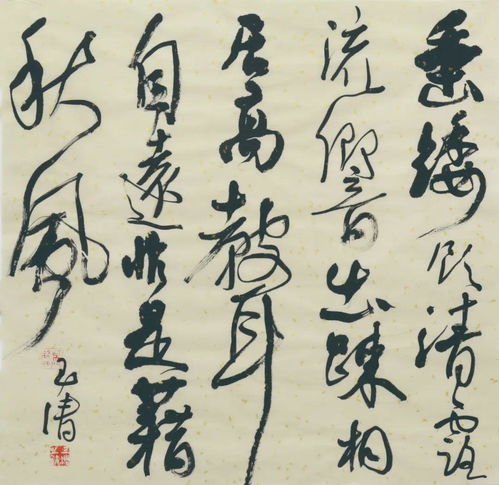 垂緌飲清露
流響出踈桐
居高聲
自遠非是藉
秋風
玉清